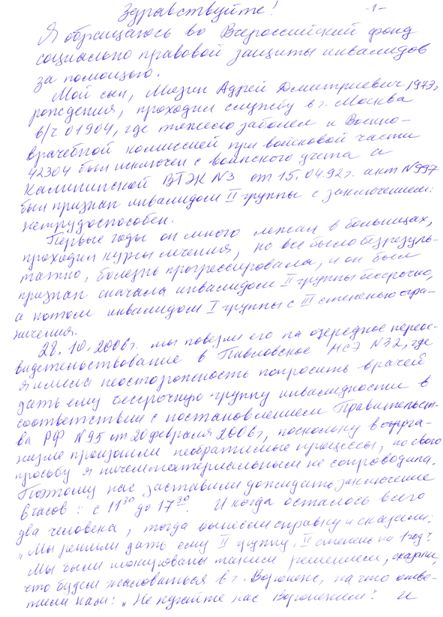 Здравствуйте! -1-
Я обращаюсь во Всероссийский фонд
социально правовой защиты инвалидов
за помощью.
Мой сын, Мизин Адрей Дмитриевич, 1973г
рождения, проходил службу в г. Москва
в/ч 01904, где тяжело заболел и Военно-
врачебной комиссией при войсковой части
42304 был исключен с воинского учета а
Калининской ВТЭК №3 от 15.04.92г. акт №997
был признан инвалидом II группы с заключением:
нетрудоспособен.
Первые годы он много лежал в больницах,
проходил курсы лечения, но все было безрезуль-
татно, болезнь прогрессировала, и он был
признан сначала инвалидом II группы бессрочно,
а потом инвалидом I группы с III степенью огра-
ничения.
28.10.2006г. мы повезли его на очередное переос-
видетельствование в Павловское МСЭ №32, где
я имела неосторожность попросить врачей
дать ему бессрочную группу инвалидности в
соответствии с постановлением Правительст-
ва РФ №95 от 20 февраля 2006г, поскольку в орга-
низме произошли необратимые процессы, но свою
просьбу я ничем материальным не сопроводила.
Поэтому нас заставили дожидать заключение
6 часов: с 11 до 17. И когда осталось всего
два человека, тогда вынесли справку и сказали:
"Мы решили дать ему II группу, II степень на 1 год".
Мы были шокированы таким решением, сказали,
что будем жаловаться в г. Воронеж, на что отве-
тили нам: "Не пугайте нас Воронежем!" И